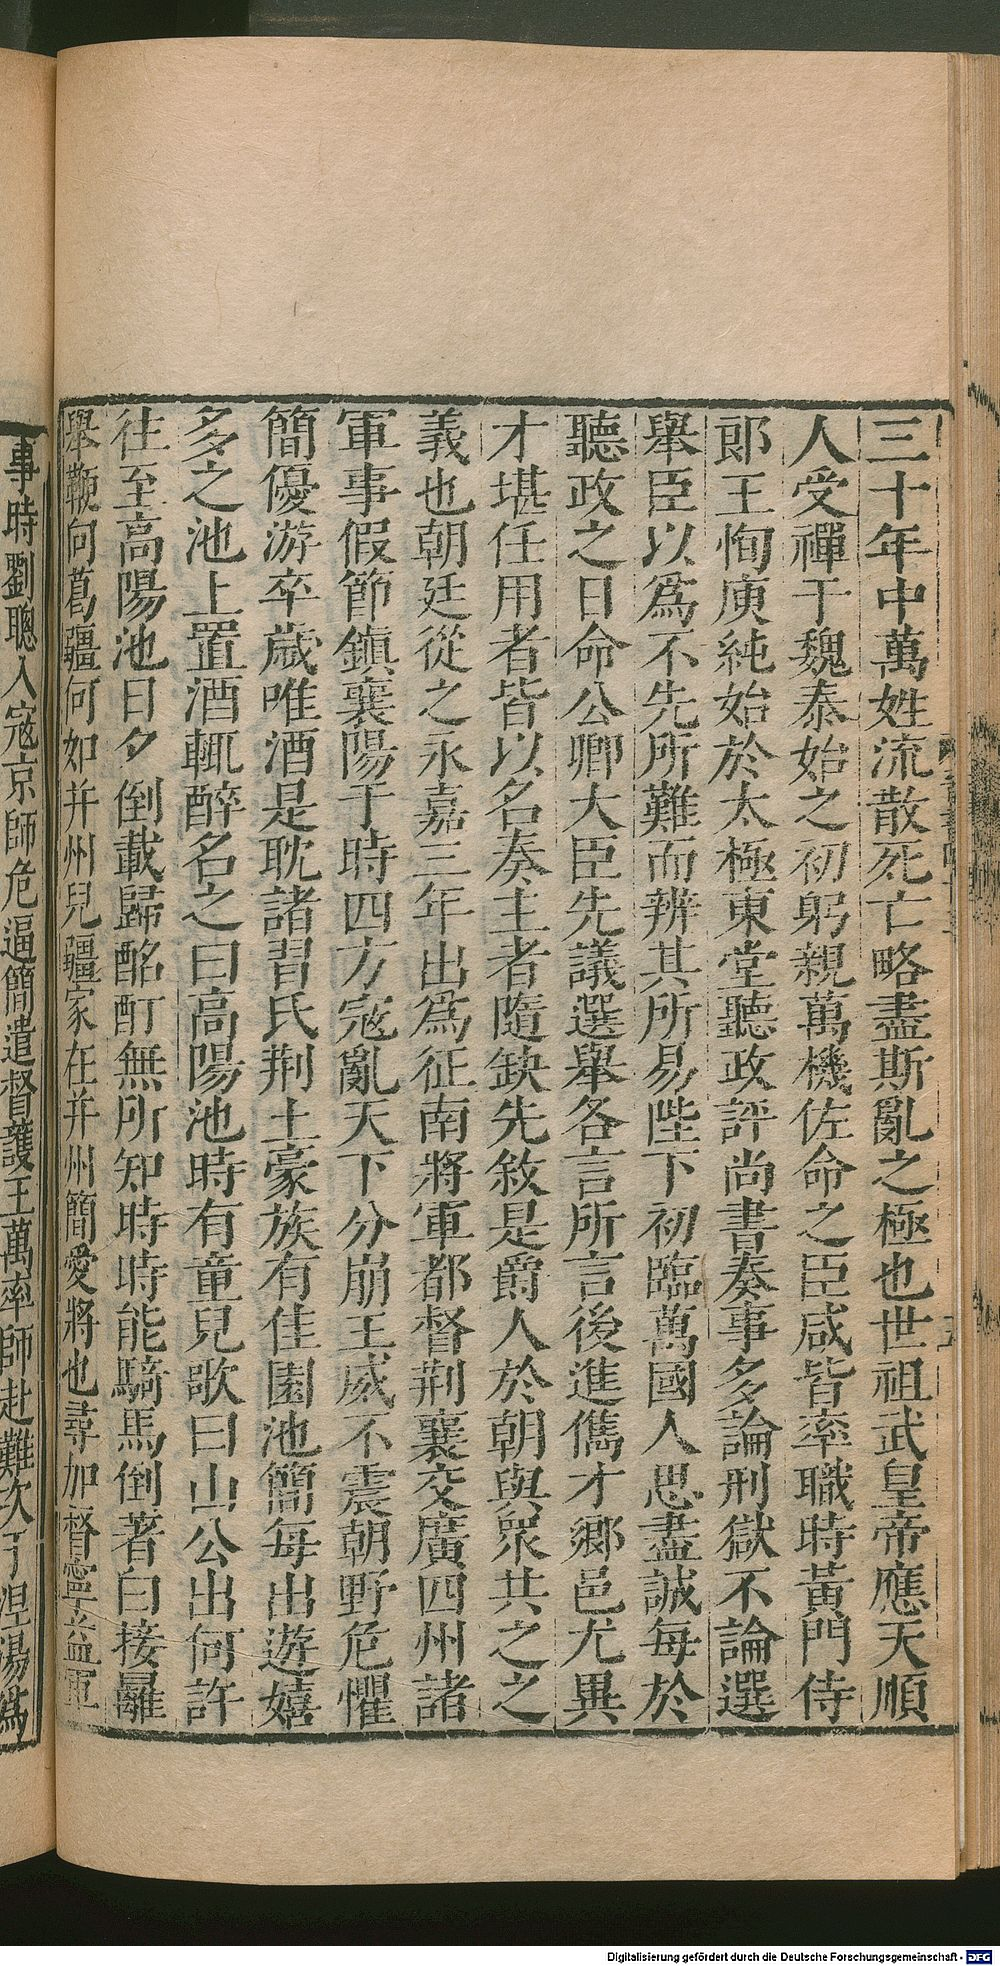 三十年中萬姓流散死亡略盡斯亂之極也世祖武皇帝應天順
人受禪于魏泰始之初躬親萬機佐命之臣咸皆率職時黃門侍
郎王恂庾純始於太極東堂聽政評尚書奏事多論刑獄不論選
舉臣以爲不先所難而辨其所易陛下初臨萬國人思盡誠每於
聽政之日命公卿大臣先議選舉各言所言後進儁才鄉邑尤異
才堪任用者皆以名奏主者隨缺先敘是爵人於朝與衆共之之
義也朝廷從之永嘉三年出爲征南將軍都督荆襄交廣四州諸
軍事假節鎮襄陽于時四方寇亂天下分崩王威不震朝野危懼
簡優游卒歲唯酒是耽諸習氏荆土豪族有佳園池簡每出遊嬉
多之池上置酒輒醉名之曰高陽池時有童兒歌曰山公出何許
往至高陽池日夕倒載歸酩酊無所知時時能騎馬倒著白接䍦
舉鞭向葛疆何如并州兒疆家在并州簡愛將也尋加督寧益軍
事時劉聰入寇京師危逼簡遣督護王萬率師赴難次于涅陽爲
Digitalisierung gefördert durch die Deutsche Forschungsgemeinschaft - DFG